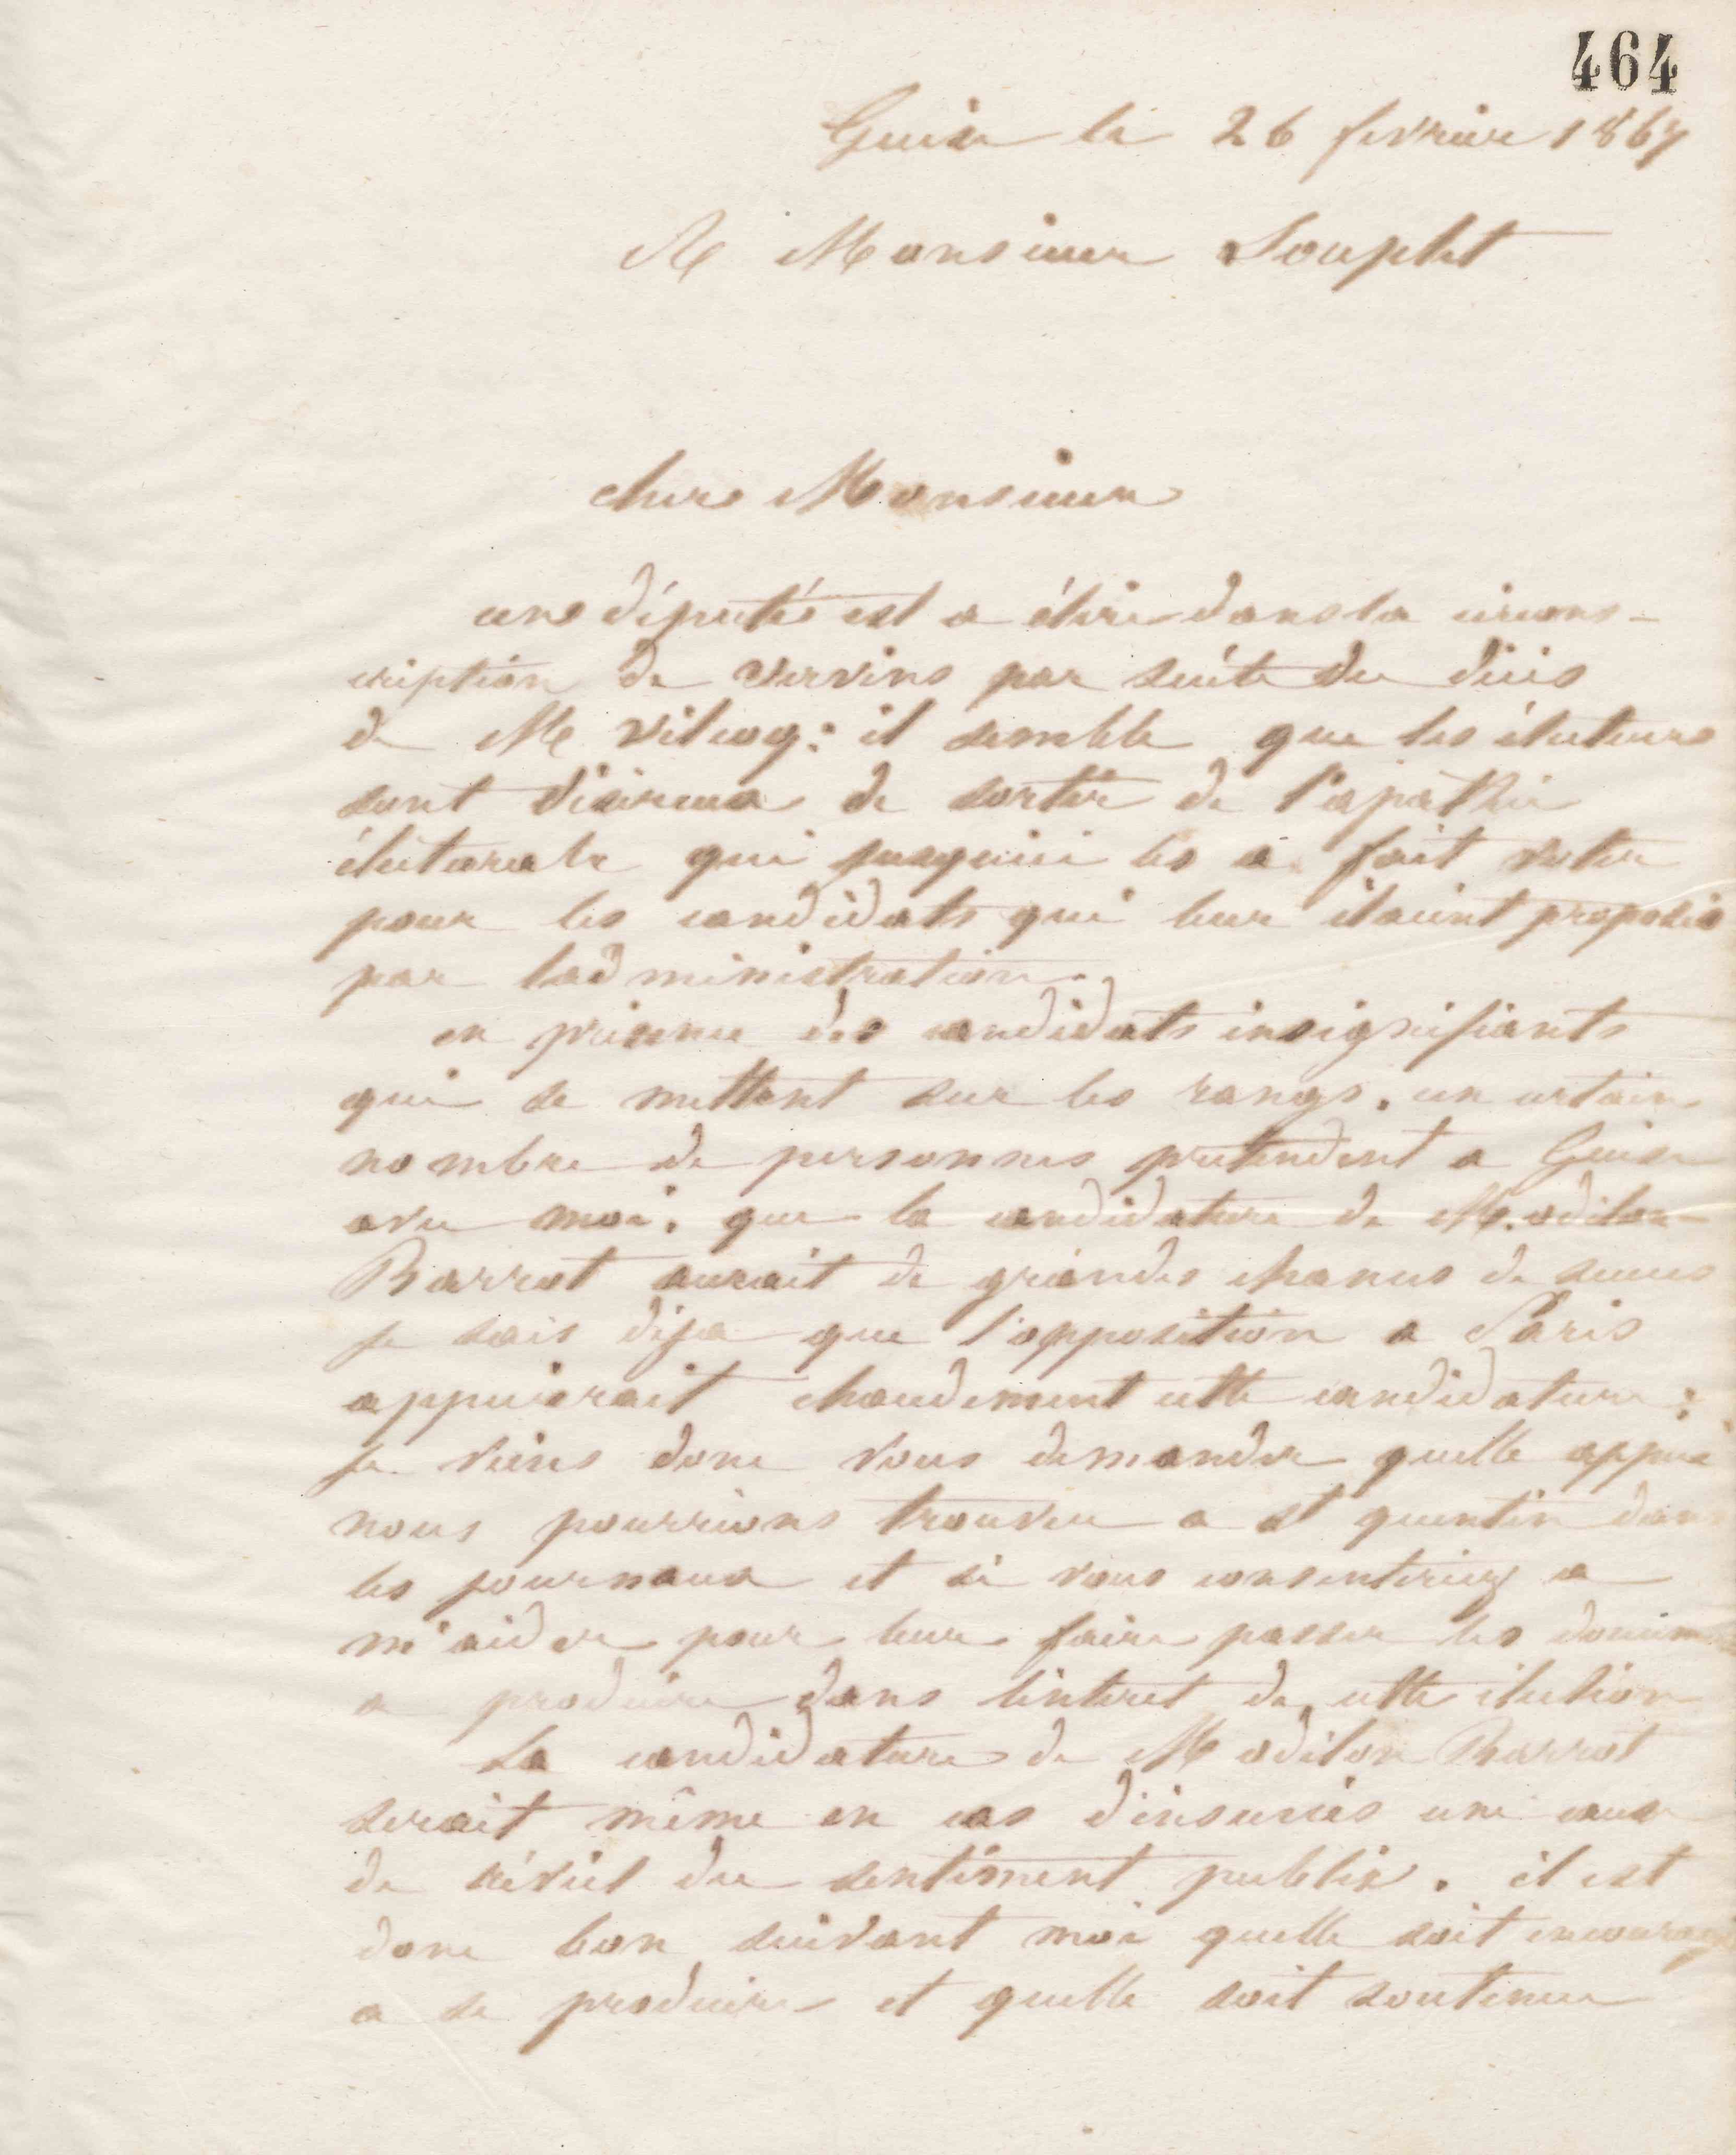 464
Guise le 26 fevrier 1867
A Monsieur Souplet
cher Monsieur
un député est a élire dans la circons-
cription de Vervins par suite du décès
de M Vilcoq: il semble que les électeurs
sont désireux de sortir de l'apathie
électorale qui jusquici les a fait voter
pour les candidats qui leur étaient proposés
par ladministration.
en présence des candidats insignifiants
qui se mettent sur les rangs. un certain
nombre de personnes pretendent a Guise
avec moi. que la candidature de M. odilon
Barrot aurait de grandes chances de succes
je sais déja que l'opposition a Paris
appuierait chaudement cette candidature:
je viens donc vous demander quelle appui
nous pourrions trouver a st quentin dans
les journaux et si vous consentiriez a
m'aider pour leur faire passer les
a produire dans linteret de cette election
La candidature de M odilon Barrot
serait même en cas d'insucces une cause
de réveil du sentiment public. il est
donc bon suivant moi quelle soit encouragée
a se produire et quelle soit soutenue